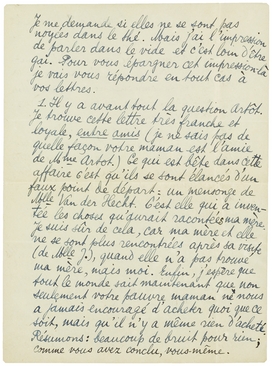 Je me demande si elles ne se sont pas
noyées dans le thé. Mais j'ai l'impression
de parler dans le vide et c'est loin d'être
gai. Pour vous épargner cet impression-là
je vais vous répondre en tout cas à
vos lettres.
1. Il y a avant tout la question Artôt.
Je trouve cette lettre très franche et
loyale, entre amis (je ne sais pas de
quelle façon votre maman est l'amie
de Mme Artôt) Ce qui est bête dans cette
affaire c'est qu'ils se sont élancés d'un
faux point de départ: un mensonge de
Mlle Van der Hecht. C'est elle qui a inven-
tée les choses qu'aurait racontées ma mère
je suis sûr de cela, car ma mère et elle
ne se sont plus rencontrées après sa visite
(de Mlle J.), quand elle n'a pas trouvé
ma mère, mais moi. Enfin, j'espère que
tout le monde sait maintenant que non
seulement votre pauvre maman ne nous
a jamais encouragé d'acheter quoi que ce
soit, mais qu'il n'y a même rien d'acheté
Résumons: beaucoup de bruit pour rien;
comme vous avez conclu, vous-même.